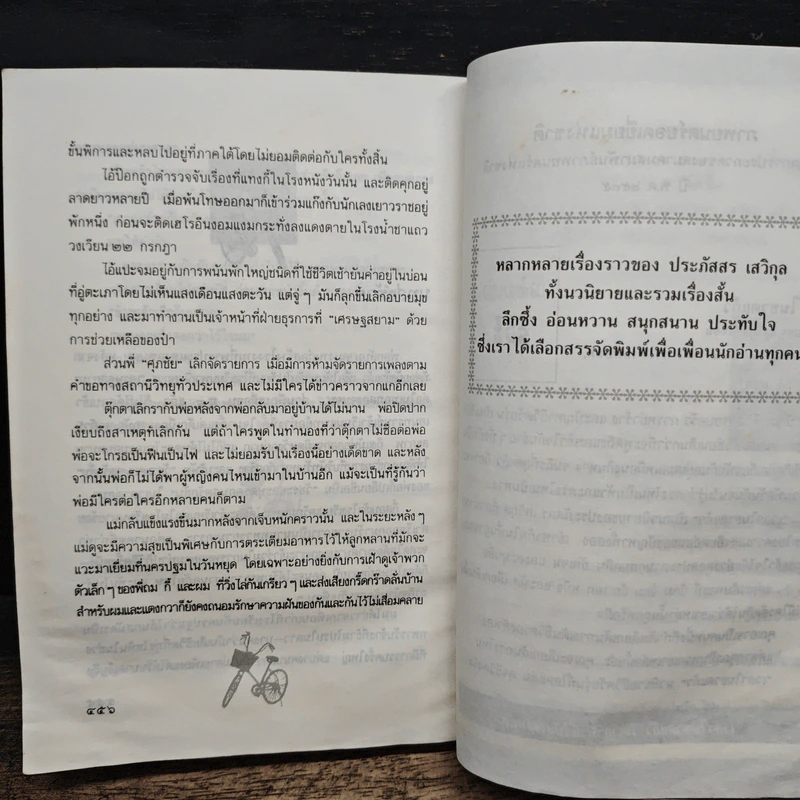 ขั้นพิการและหลบไปอยู่ที่ภาคใต้โดยไม่ยอมติดต่อกับใครทั้งสิ้น
ไอ้ป๊อกถูกตำรวจจับเรื่องที่แทงกี้ในโรงหนังวันนั้น และติดคุกอยู่
ลาดยาวหลายปี เมื่อพ้นโทษออกมาก็เข้าร่วมแก๊งกับนักเลงเยาวราชอยู่
พักหนึ่ง ก่อนจะติดเฮโรอีนงอมแงมกระทั่งลงแดงตายในโรงน้ำชาแถว
วงเวียน ๒๒ กรกฎา
ไอ้แปะจมอยู่กับการพนันพักใหญ่ชนิดที่ใช้ชีวิตเช้ายันค่ำอยู่ในบ่อน
ที่อู่ตะเภาโดยไม่เห็นแสงเดือนแสงตะวัน แต่จู่ๆ มันก็ลุกขึ้นเลิกอบายมุข
ทุกอย่าง และมาทำงานเป็นเจ้าหน้าที่ฝ่ายธุรการที่ "เศรษฐสยาม" ด้วย
การช่วยเหลือของป๋า
ส่วนพี่ "ศุภชัย" เลิกจัดรายการ เมื่อมีการห้ามจัดรายการเพลงตาม
คำขอทางสถานีวิทยุทั่วประเทศ และไม่มีใครได้ข่าวคราวจากแกอีกเลย
ตุ๊กตาเลิกรากับพ่อหลังจากพ่อกลับมาอยู่บ้านได้ไม่นาน พ่อปิดปาก
เงียบถึงสาเหตุที่เลิกกัน แต่ถ้าใครพูดในทำนองที่ว่าตุ๊กตาไม่ซื่อต่อพ่อ
พ่อจะโกรธเป็นฟืนเป็นไฟ และไม่ยอมรับในเรื่องนี้อย่างเด็ดขาด และหลัง
จากนั้นพ่อก็ไม่ได้พาผู้หญิงคนไหนเข้ามาในบ้านอีก แม้จะเป็นที่รู้กันว่า
พ่อมีใครต่อใครอีกหลายคนก็ตาม
แม่กลับแข็งแรงขึ้นมากหลังจากเจ็บหนักคราวนั้น และในระยะหลังๆ
แม่ดูจะมีความสุขเป็นพิเศษกับการตระเตียมอาหารไว้ให้ลูกหลานที่มักจะ
แวะมาเยี่ยมที่นครปฐมในวันหยุด โดยเฉพาะอย่างยิ่งกับการเฝ้าดูเจ้าพวก
ตัวเล็กๆ ของพี่ถม กี้ และผม ที่วิ่งไล่กันเกรียวๆ และส่งเสียงกรี๊ดกร๊าดลั่นบ้าน
สำหรับผมและแตงกวาก็ยังคงถนอมรักษาความฝันของกันและกันไว้ไม่เสื่อมคลาย
๔๕๖
หลากหลายเรื่องราวของ ประภัสสร เสวิกุล
ทั้งนวนิยายและรวมเรื่องสั้น
ลึกซึ้ง อ่อนหวาน สนุกสนาน ประทับใจ
ซึ่งเราได้เลือกสรรจัดพิมพ์เพื่อเพื่อนนักอ่านทุกคน